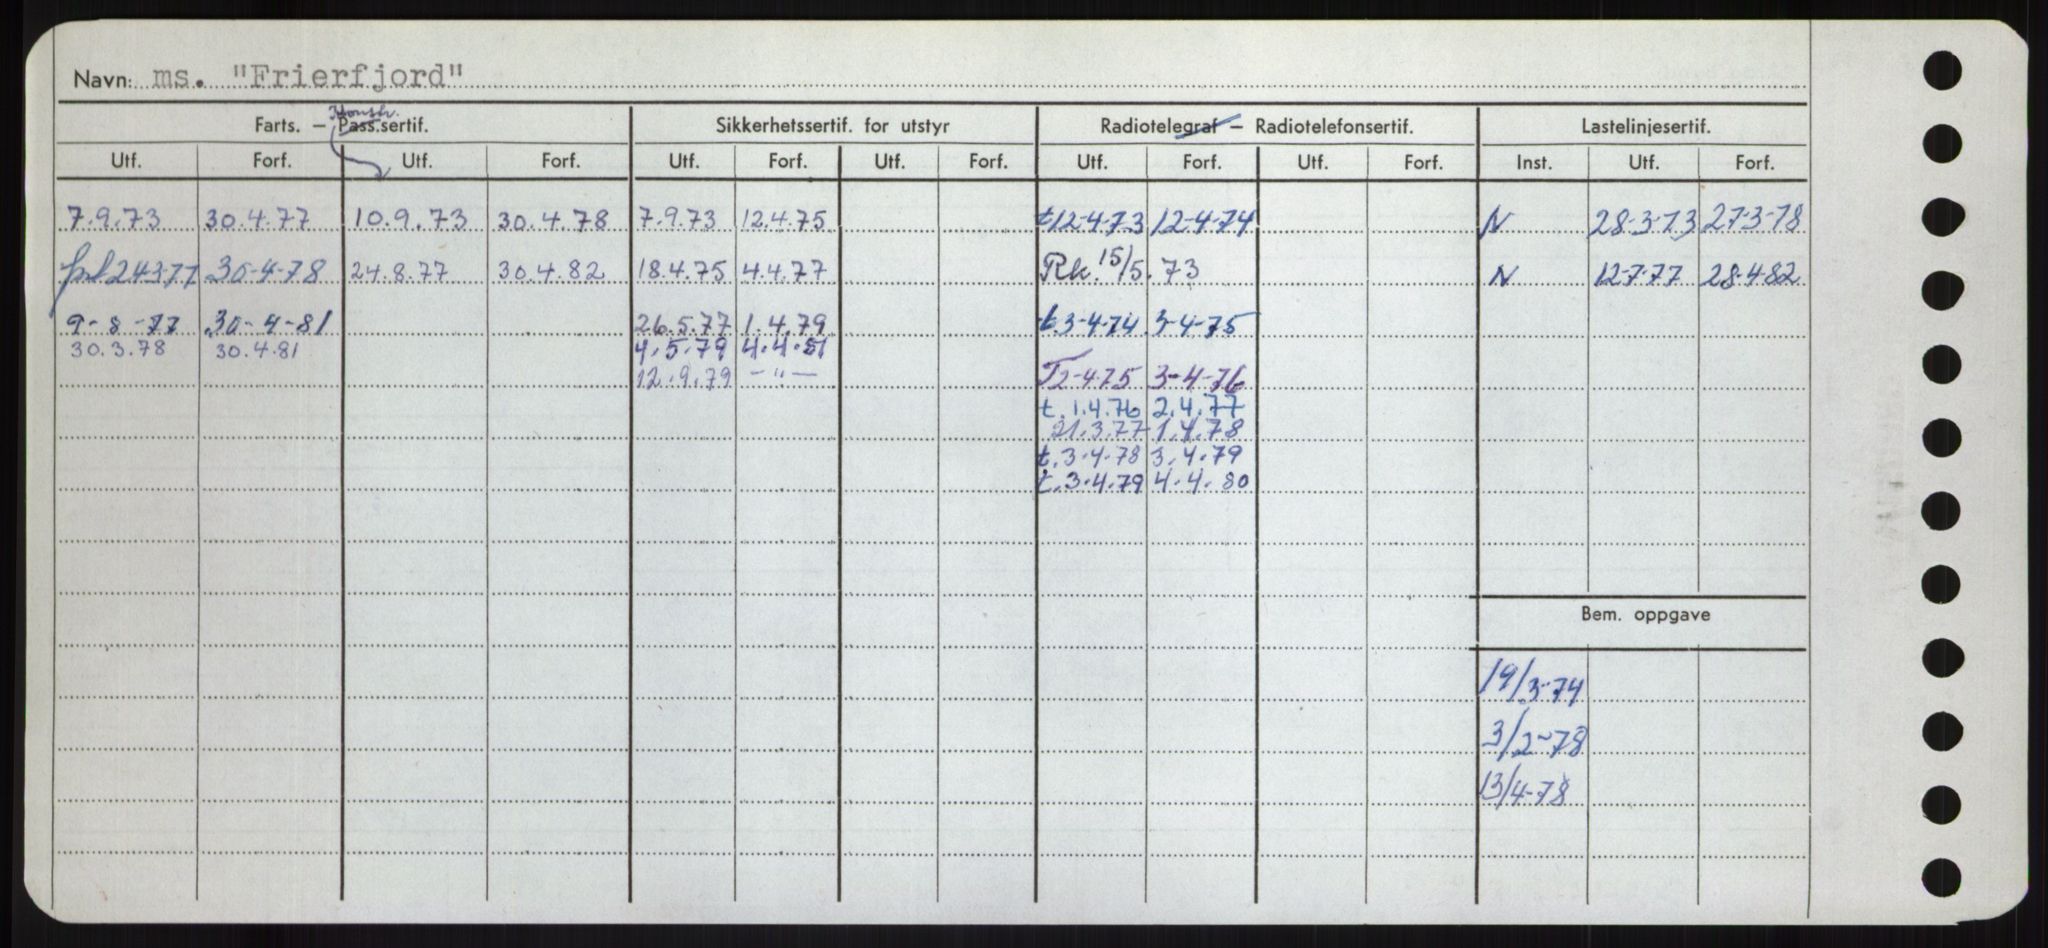 Navn: ms. "Frierfjord"
Konstr.
Farts. — Pass.sertif. Sikkerhetssertif. for utstyr Radiotelegraf — Radiotelefonsertif. Lastelinjesertif.
Utf. Forf. Utf. Forf. Utf. Forf. Utf. Forf. Utf. Forf. Utf. Forf. Inst. Utf. Forf.
7.9.73 30.4.77 10.9.73 30.4.78 7.9.73 12.4.75 t12-4-73 12-4-74 N 28-3-73 27-3-78
24-3-77 30-4-78 24.8.77 30.4.82 18.4.75 4.4.77 Rk. 15/5.73 N 12-7-77 28-4-82
9-8-77 30-4-81 26.5.77 1.4.79 t.3-4-74 3-4-75
30.3.78 30.4.81 4.5.79 4.4.81
12.9.79 — " — T2-4-75 3-4-76
t.1.4.76 2.4.77
21.3.77 1.4.78
t.3.4.78 3.4.79
t.3.4.79 4.4.80
Bem. oppgave
19/3-74
3/2-78
13/4-78